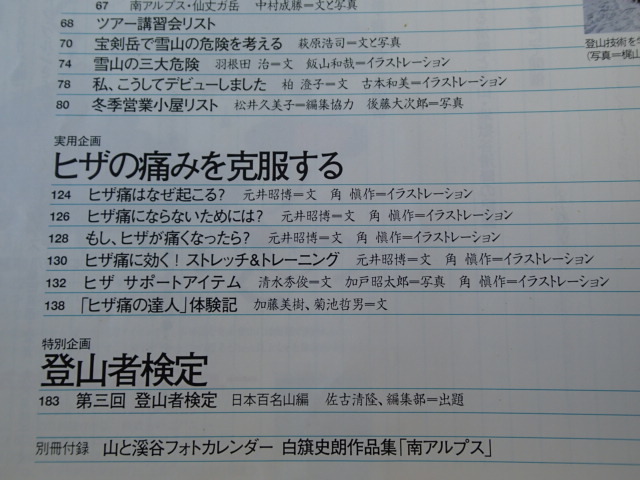 67 南アルプス・仙丈ガ岳 中村成勝=文と写真
68 ツアー講習会リスト
70 宝剣岳で雪山の危険を考える 萩原浩司=文と写真
74 雪山の三大危険 羽根田 治=文 飯山和哉=イラストレーション
78 私、こうしてデビューしました 柏 澄子=文 古本和美=イラストレーション
80 冬季営業小屋リスト 松井久美子=編集協力 後藤大次郎=写真
登山技術を
(写真=梶山
実用企画
ヒザの痛みを克服する
124 ヒザ痛はなぜ起こる? 元井昭博=文 角 愼作=イラストレーション
126 ヒザ痛にならないためには? 元井昭博=文 角 愼作=イラストレーション
128 もし、ヒザが痛くなったら? 元井昭博=文 角 愼作=イラストレーション
130 ヒザ痛に効く! ストレッチ&トレーニング 元井昭博=文 角 愼作=イラストレーション
132 ヒザ サポートアイテム 清水秀俊=文 加戸昭太郎=写真 角 愼作=イラストレーション
138 「ヒザ痛の達人」体験記 加藤美樹、菊池哲男=文
特別企画
登山者検定
183 第三回 登山者検定 日本百名山編 佐古清隆、編集部=出題
別冊付録 山と溪谷フォトカレンダー 白籏史朗作品集「南アルプス」